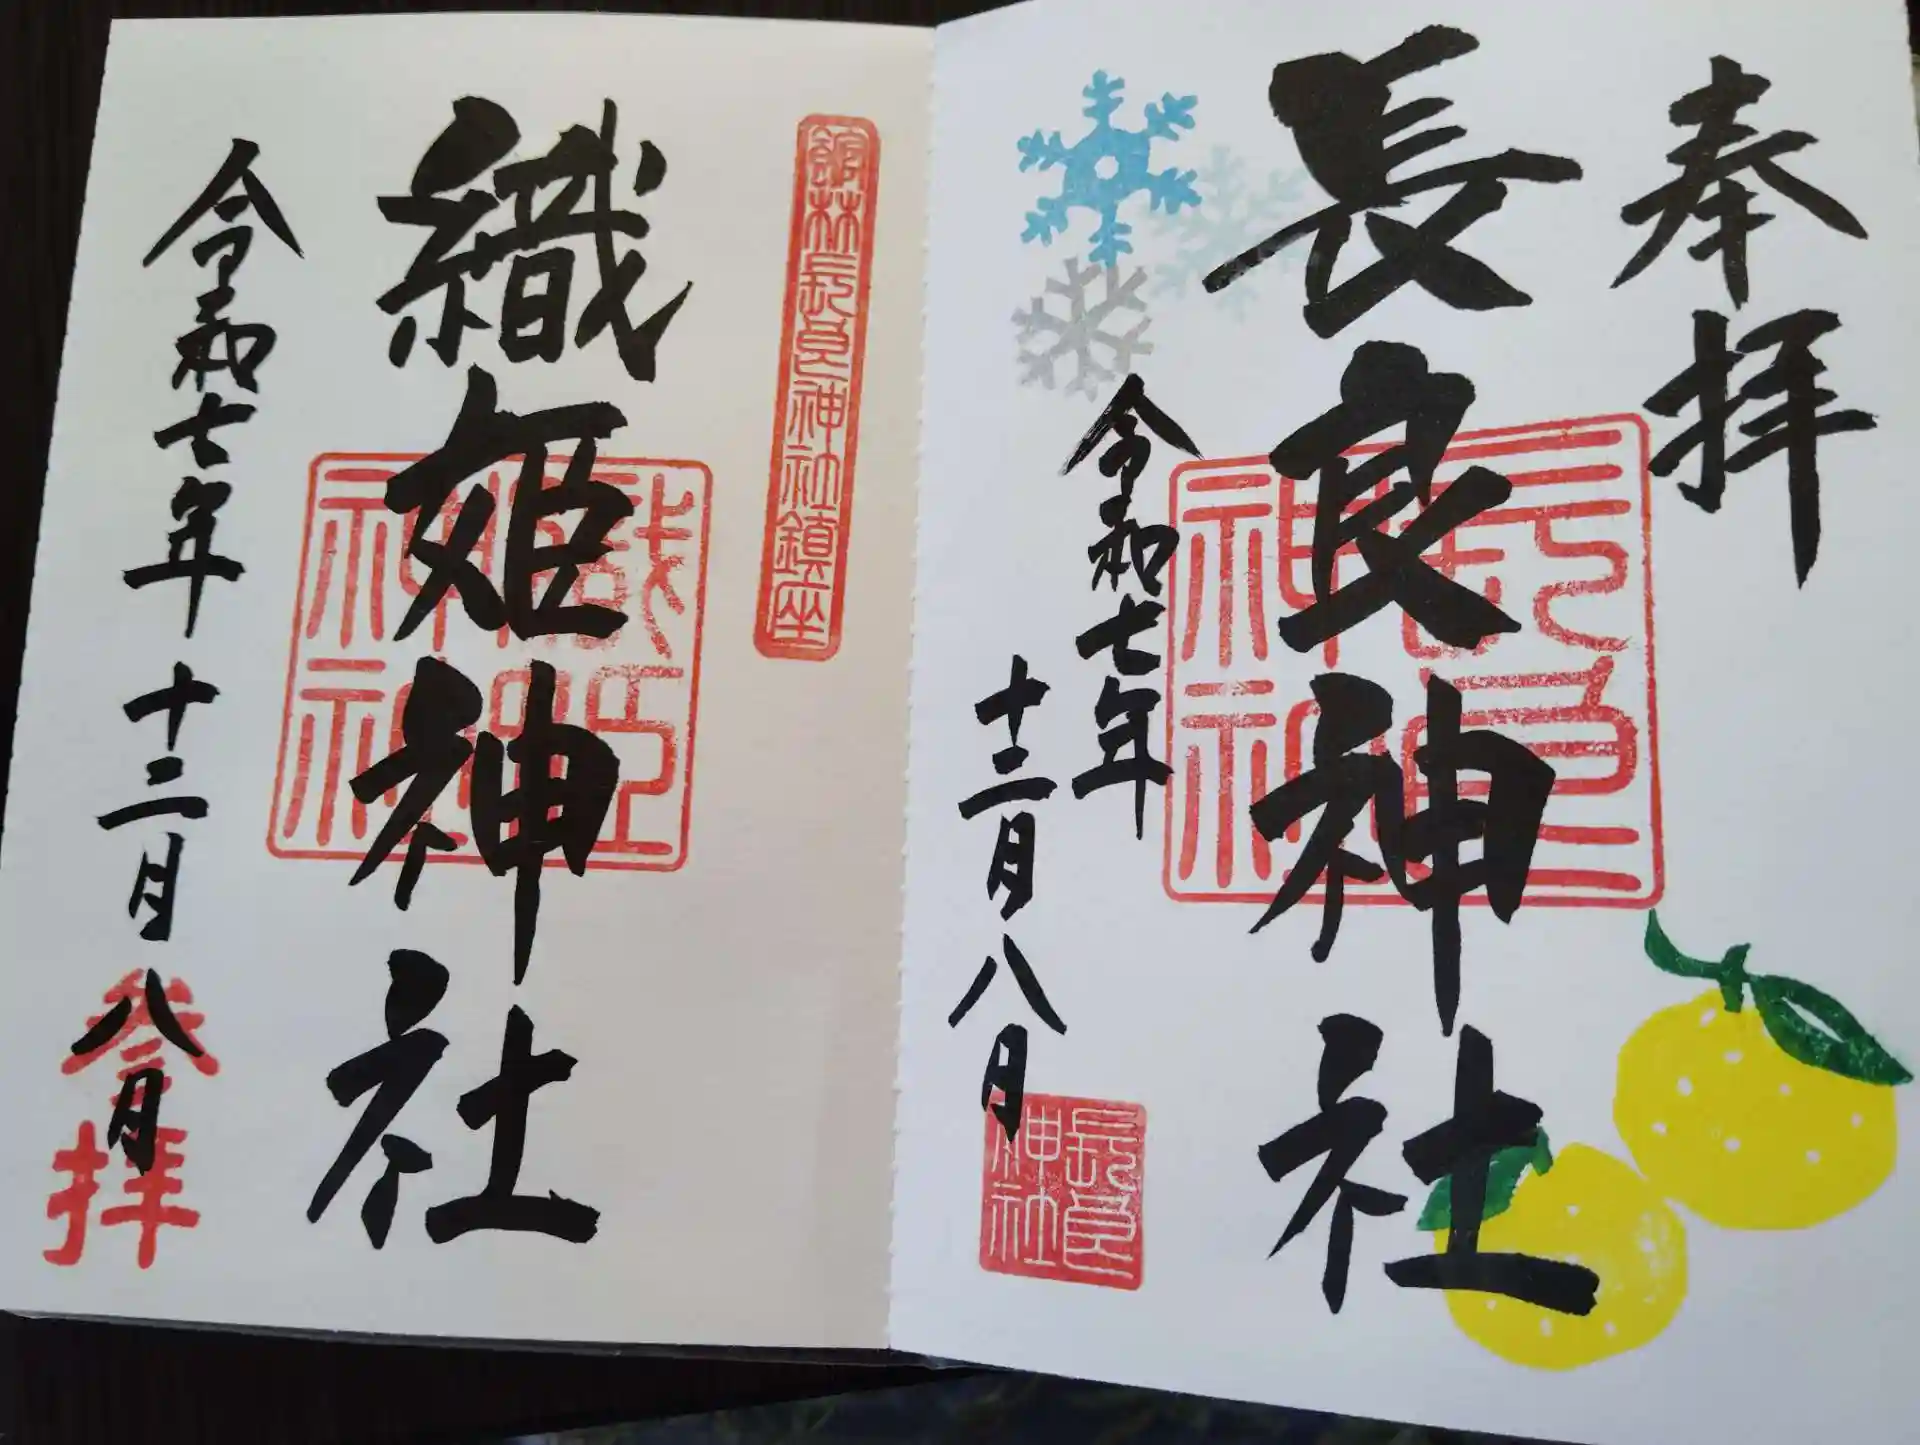 奉拝
長良神社
令和七年
十二月八日
長良神社
長良神社
館林長良神社鎮座
織姫神社
織姫神社
令和七年十二月八日
奉拝